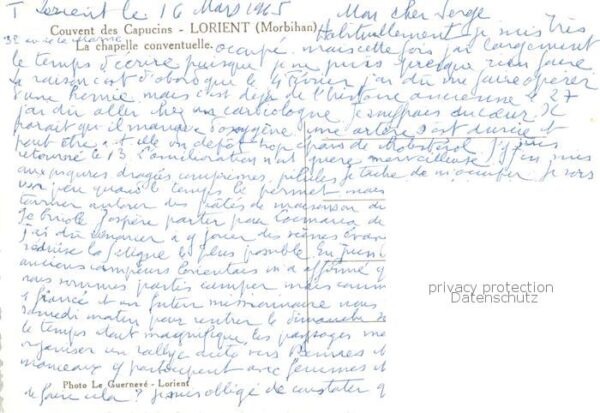 Lorient le 16 Mars 1965 Mon cher Serge
Couvent des Capucins - LORIENT (Morbihan)
Habituellement je suis très
La chapelle conventuelle.
occupé mais cette fois j'ai largement
le temps d'écrire puisque je ne puis presque rien faire
la raison c'est d'abord que le 4 Février j'ai dû me faire opérer
d'une hernie mais c'est déjà de l'histoire ancienne le 27
j'ai dû aller chez un cardiologue je souffrais du coeur Il
parait qu'il manque d'oxygène une artère s'est durcie et
peut être a t elle un dépôt trop épais de cholestérol J'y suis
retourné le 13 l'amélioration n'est guère merveilleuse J'en suis
aux piqures dragées comprimés pilules je tâche de m'occuper Je vors
un peu quand le temps le permet mais
tourner autour des pâtés de maisons on
Je bricole J'espère partir pour
j'ai dû renoncer à y jouer des scènes
réduire la fatigue le plus possible En
anciens campeurs Lorientais m'a affirmé q
nous sommes partis camper mais comm
fiancé et un futur missionnaire nous
samedi matin pour rentrer le dimanche
le temps était magnifique les paysages me
organiser un rallye auto vers Rennes et
morceaux y participent avec femmes et
de faire cela ? je suis obligé de constater q
privacy protection
Datenschutz
Photo Le Guernevé - Lorient